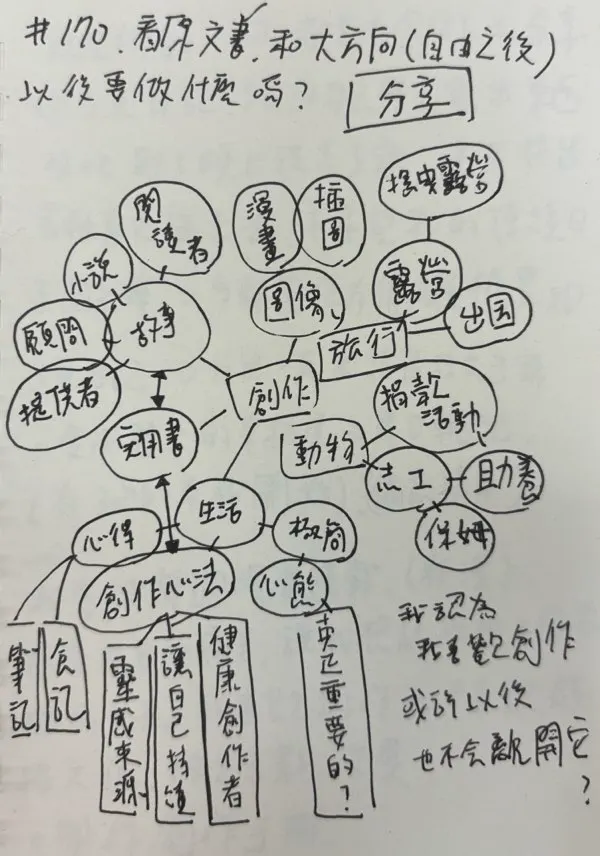 #170. 看原文書、和大方向(自由之後)
以後要做什麼嗎?
分享
閱讀者
漫畫
插圖
露營
小說
顧問
提供者
故事
圖像
露營
旅行
出國
創作
實用書
動物
捐款活動
志工
助養
保姆
心得
生活
極簡
創作心法
心態
筆記
食記
靈感來源
讓自己持續
健康創作者
重要的?
我認為
我喜歡創作
或許以後
也不会離開它
?